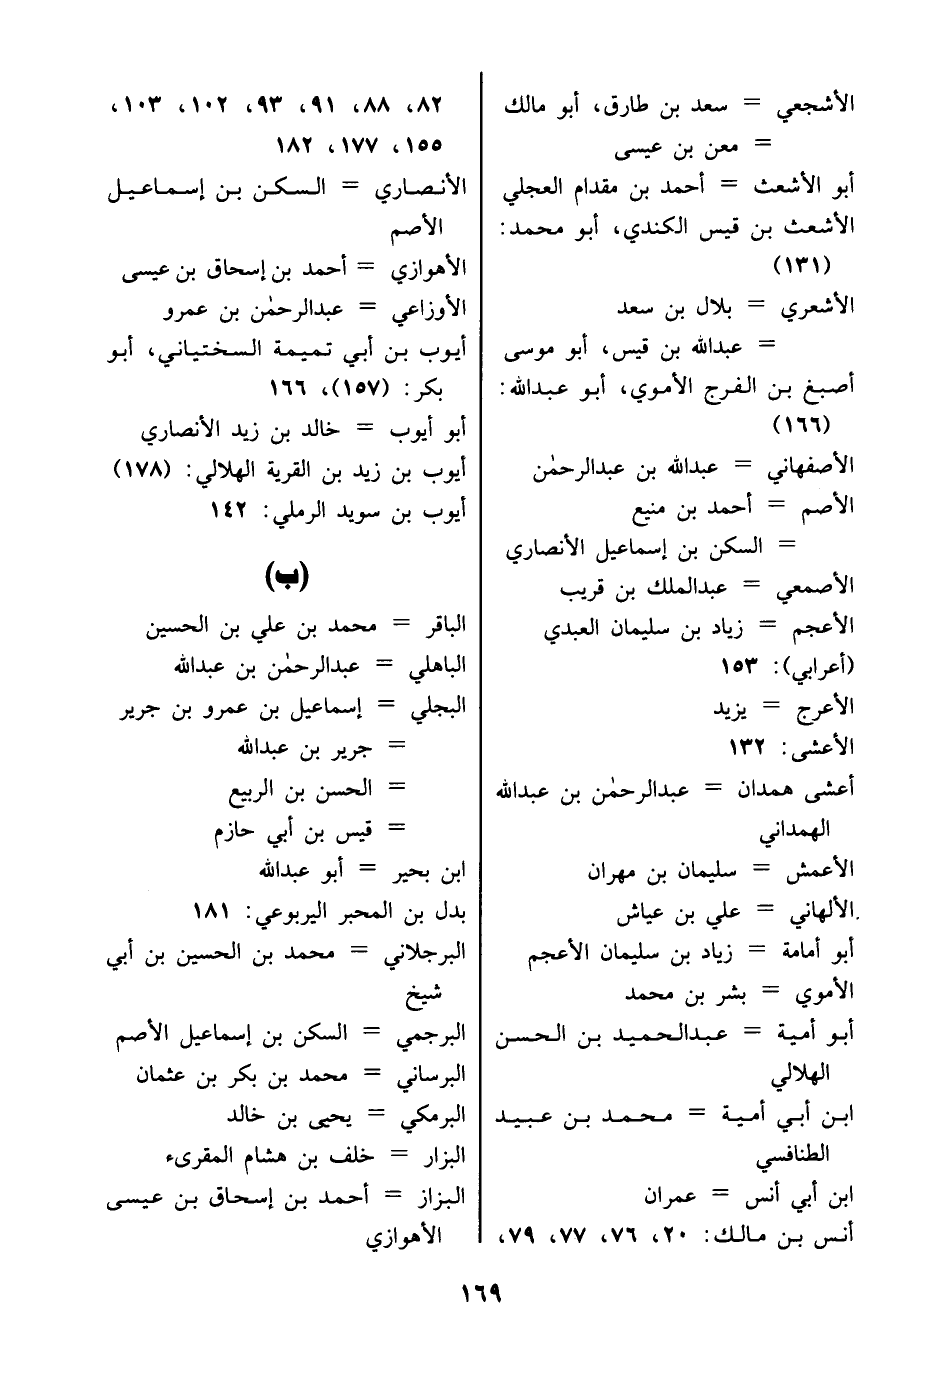 الأشجعي = سعد بن طارق، أبو مالك
= معن بن عيسى
أبو الأشعث = أحمد بن مقدام العجلي
الأشعث بن قيس الكندي، أبو محمد:
(١٣١)
الأشعري = بلال بن سعد
= عبدالله بن قيس، أبو موسى
أصبغ بن الفرج الأموي، أبو عبدالله:
(١٦٦)
الأصفهاني = عبدالله بن عبدالرحمٰن
الأصم = أحمد بن منيع
= السكن بن إسماعيل الأنصاري
الأصمعي = عبدالملك بن قريب
الأعجم = زياد بن سليمان العبدي
(أعرابي): ١٥٣
الأعرج = يزيد
الأعشى: ١٣٢
أعشى همدان = عبدالرحمٰن بن عبدالله
الهمداني
الأعمش = سليمان بن مهران
الألهاني = علي بن عياش
أبو أمامة = زياد بن سليمان الأعجم
الأموي = بشر بن محمد
أبو أمية = عبدالحميد بن الحسن
الهلالي
ابن أبي أمية = محمد بن عبيد
الطنافسي
ابن أبي أنس = عمران
أنس بن مالك: ٢٠، ٧٦، ٧٧، ٧٩،
٨٢، ٨٨، ٩١، ٩٣، ١٠٢، ١٠٣،
١٥٥، ١٧٧، ١٨٢
الأنصاري = السكن بن إسماعيل
الأصم
الأهوازي = أحمد بن إسحاق بن عيسى
الأوزاعي = عبدالرحمٰن بن عمرو
أيوب بن أبي تميمة السختياني، أبو
بكر: (١٥٧)، ١٦٦
أبو أيوب = خالد بن زيد الأنصاري
أيوب بن زيد بن القرية الهلالي: (١٧٨)
أيوب بن سويد الرملي: ١٤٢
(ب)
الباقر = محمد بن علي بن الحسين
الباهلي = عبدالرحمٰن بن عبدالله
البجلي = إسماعيل بن عمرو بن جرير
= جرير بن عبدالله
= الحسن بن الربيع
= قيس بن أبي حازم
ابن بحير = أبو عبدالله
بدل بن المحبر اليربوعي: ١٨١
البرجلاني = محمد بن الحسين بن أبي
شيخ
البرجمي = السكن بن إسماعيل الأصم
البرساني = محمد بن بكر بن عثمان
البرمكي = يحيى بن خالد
البزار = خلف بن هشام المقرىء
البزاز = أحمد بن إسحاق بن عيسى
الأهوازي
١٦٩